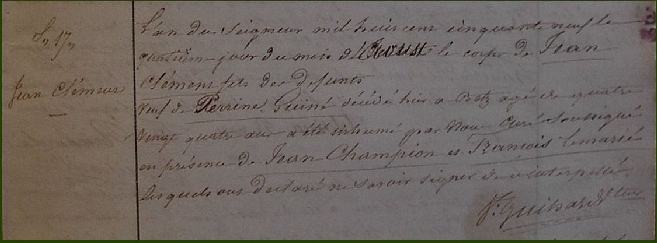 S. 17
Jean Clément
L'an du Seigneur mil huit cent cinquante neuf le
quatrième jour du mois d'Aoust le corps de Jean
Clément fils des defunts
veuf de Perrine Guiné décédé hier a Betz agé de quatre
vingt quatre ans a été inhumé par Nous Curé soussigné
en présence de Jean Champion et François Lemarié
lesquels ont declaré ne savoir signer de ce interpellé